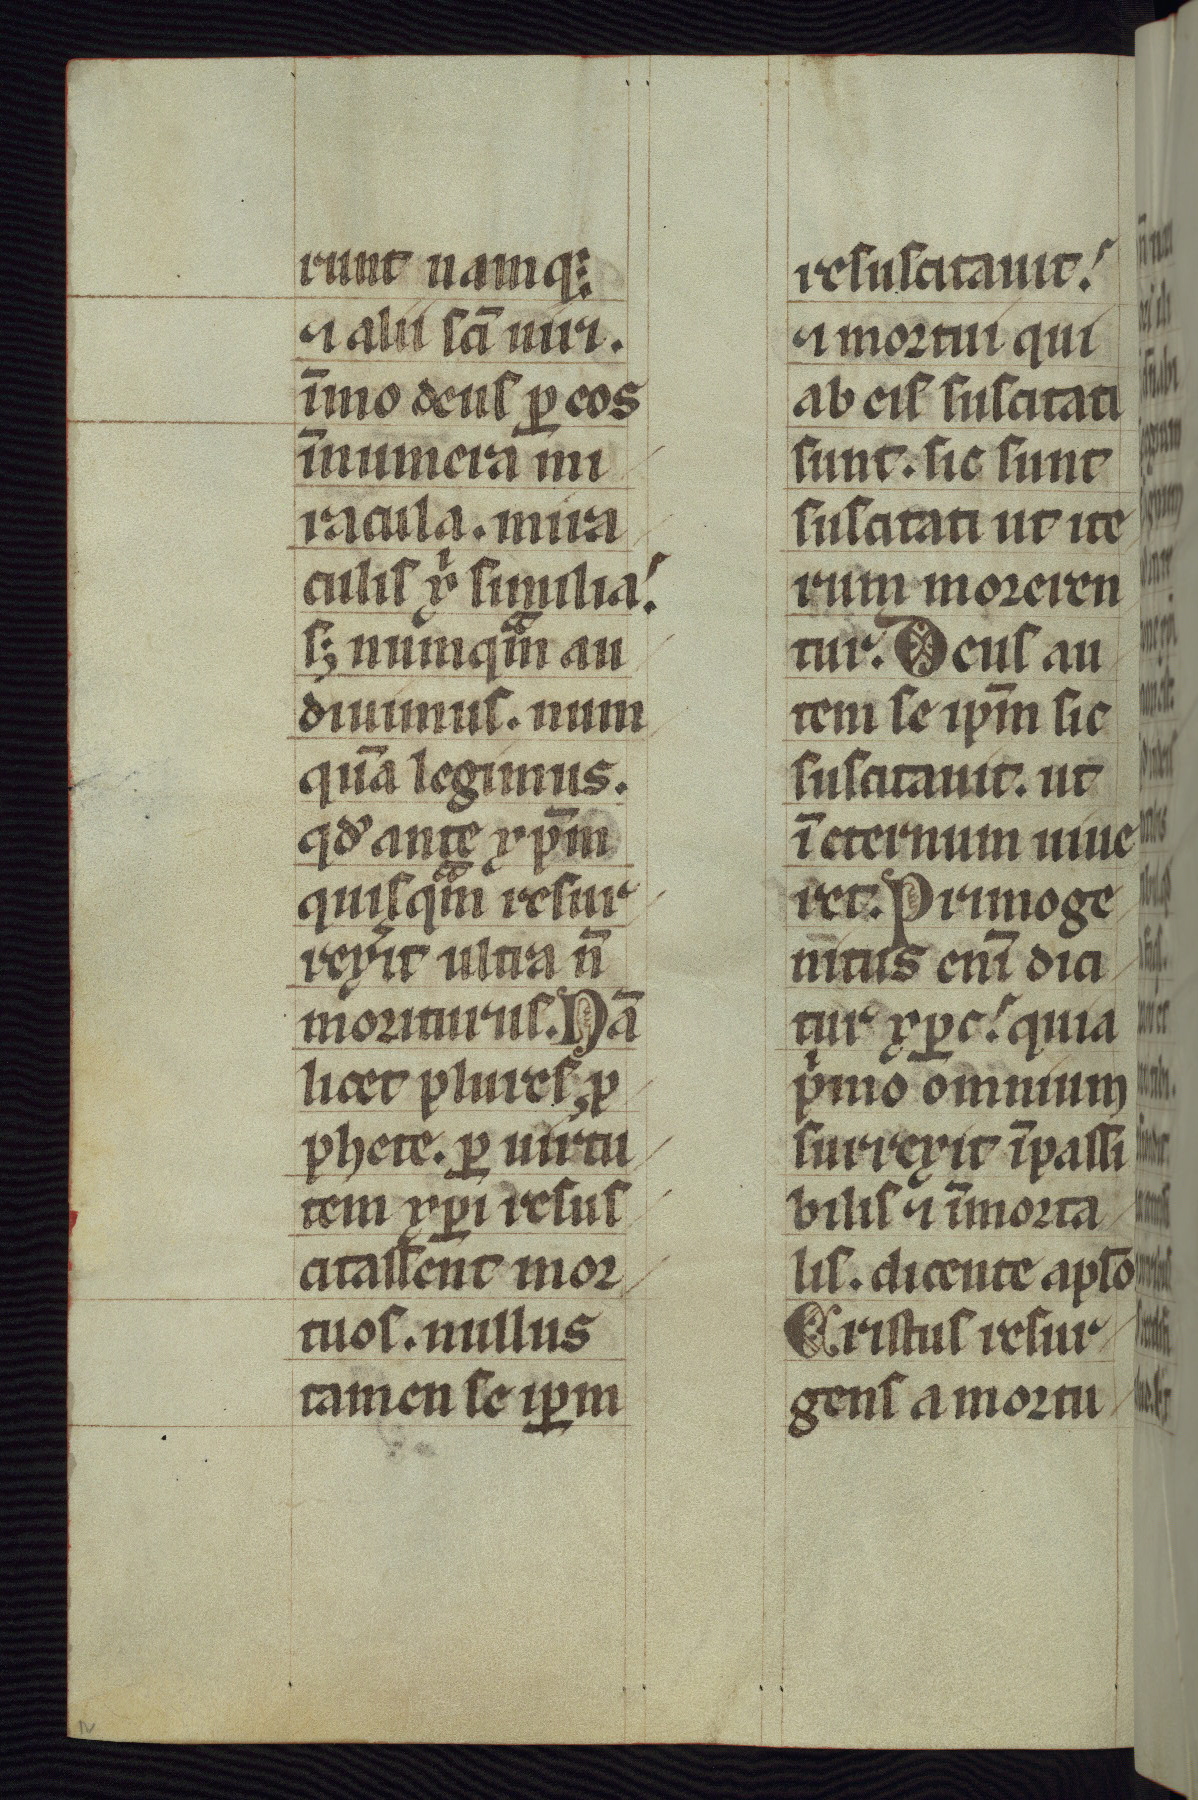 runt namq;
⁊ alii scī uiri.
īmo deus ꝑ eos
īnumera mi
racula. mira
culis xͥ similia!
sꝫ numqͣm̄ au
diuimus. num
quā legimus.
qđ ante xp̄m
quisqͣm̄ resur
rexͥit ultra n̄
moriturus. Nā
licet plures ꝓ
phete. ꝑ uirtu
tem xp̄i resus
citassent mor
tuos. nullus
tamen se ip̄m
resuscitauit!
⁊ mortui qui
ab eis suscitati
sunt. sic sunt
suscitati ut ite
rum moreren
tur. Deus au
tem se ip̄m sic
suscitauit. ut
ī eternum uiue
ret. Primoge
nitus enī dici
tur xp̄c! quia
pͥmo omnium
surrexit īpassi
bilis ⁊ īmorta
lis. dicente apl̄o
Cristus resur
gens a mortu